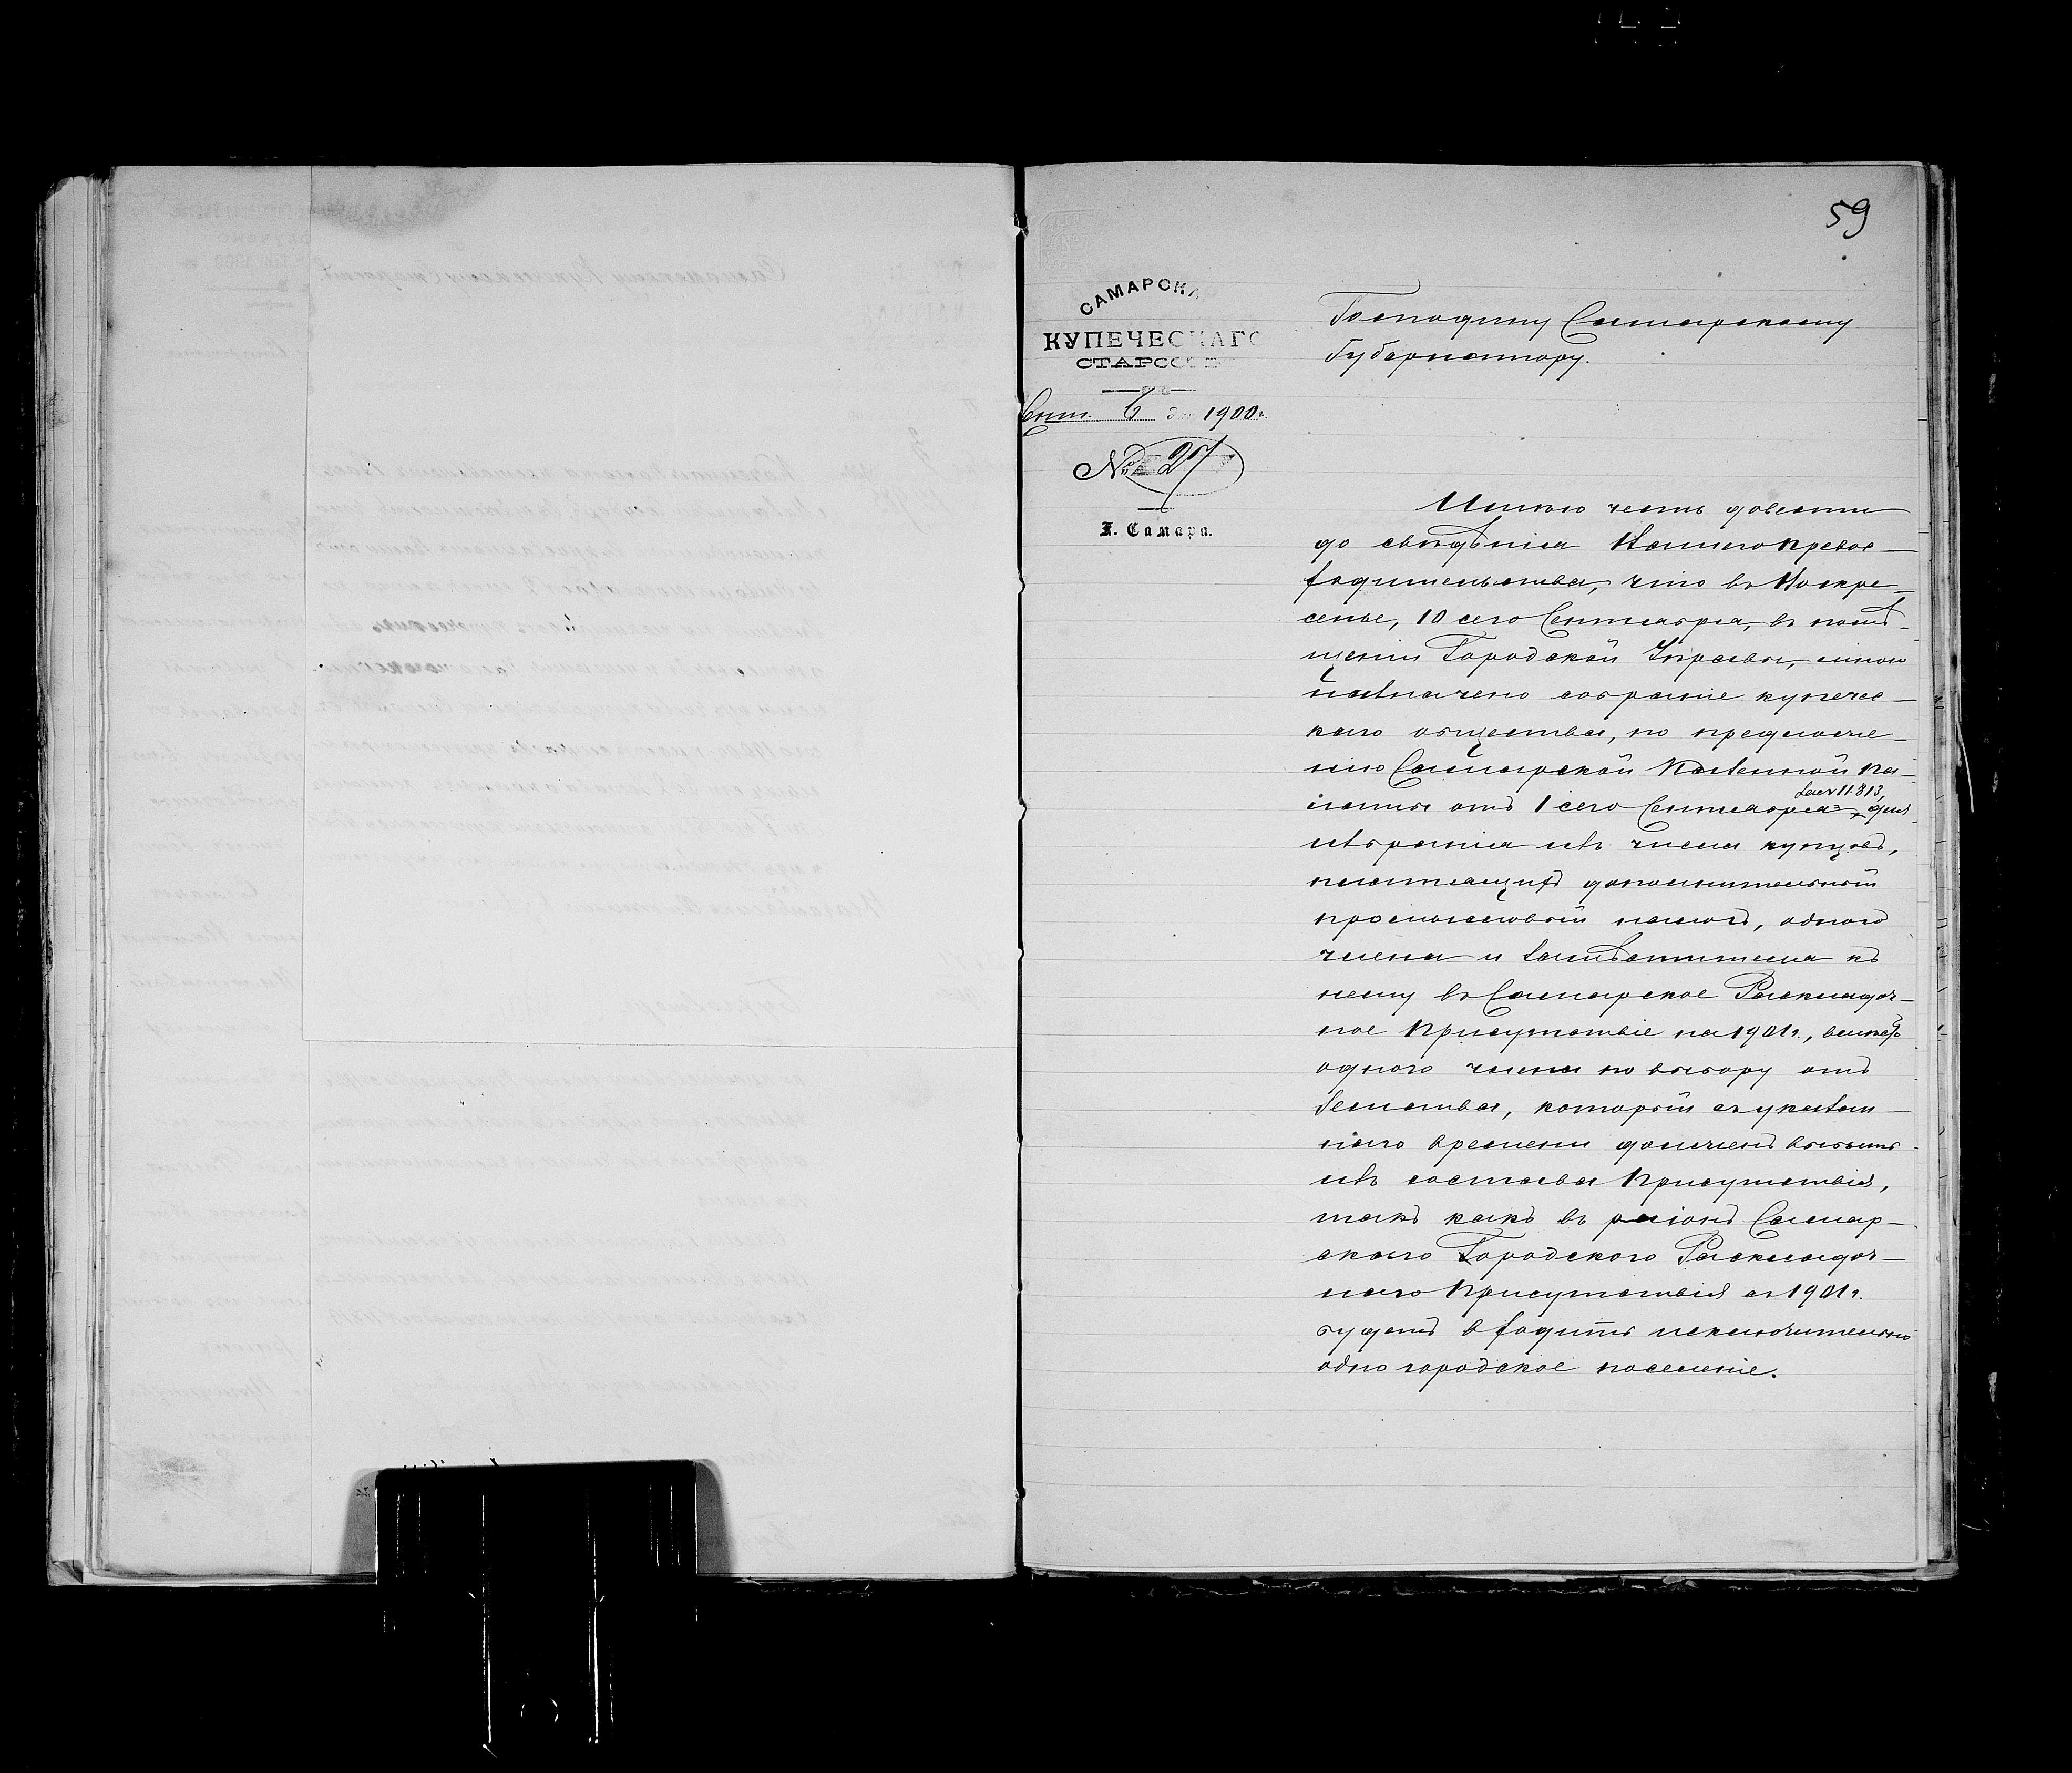 59
САМАРСКА
КУПЕЧЕСКАГО
СТАРОСТ
Сент. 6 дня 1900 г.
№ 27
Г. Самара.
Господину Самарскому
Губернатору.
Имѣю честь довести
до свѣдѣнія Вашего Превос-
ходительства, что въ Воскре-
сенье, 10 сего Сентября, въ помѣ-
щеніи Городской Управы, мною
назначено собраніе купечес-
каго общества, по предложе-
нію Самарской Казенной Па-
латы отъ 1 сего Сентября за № 11813, для
избранія изъ числа купцовъ,
платящихъ дополнительный
промысловый налогъ, одного
члена и замѣстителя къ
нему въ Самарское Раскладоч-
ное Присутствіе на 1901 г., вмѣсто
одного члена по выбору отъ
Земства, который съ указан-
наго времени долженъ выбыть
изъ состава Присутствія,
такъ какъ въ раіонъ Самар-
скаго Городского Раскладоч-
наго Присутствія съ 1901 г.
будетъ входить исключительно
одно городское поселеніе.